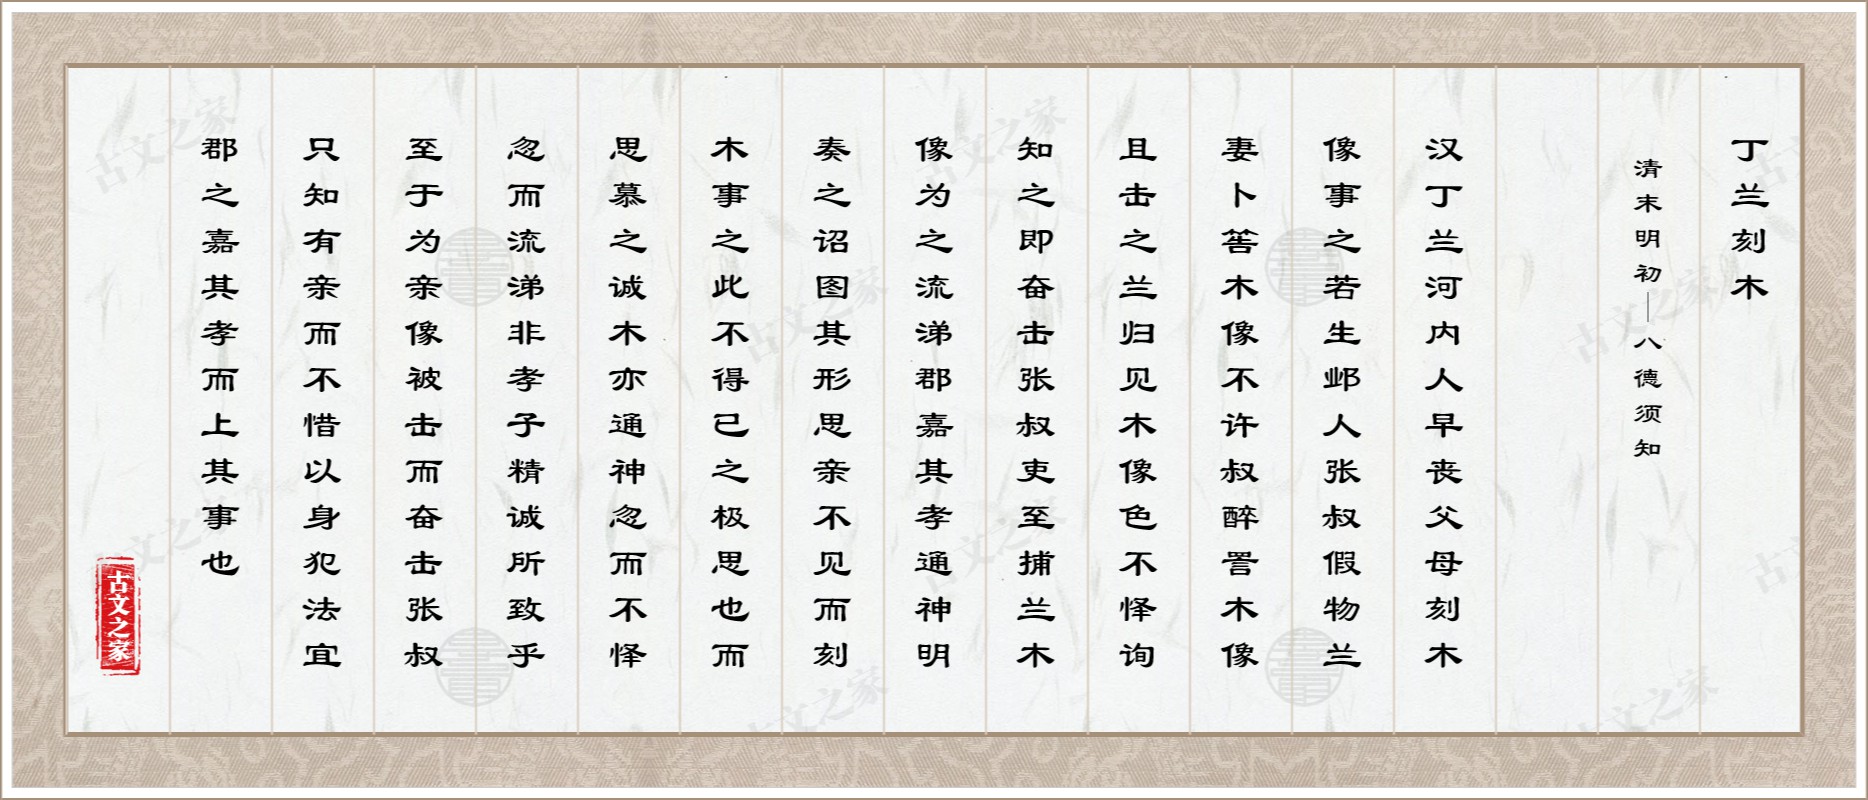 丁兰刻木
清末明初—八德须知
汉丁兰河内人早丧父母刻木
像事之若生邺人张叔假物兰
妻卜筶木像不许叔醉詈木像
且击之兰归见木像色不怿询
知之即奋击张叔吏至捕兰木
像为之流涕郡嘉其孝通神明
奏之诏图其形思亲不见而刻
木事之此不得已之极思也而
思慕之诚木亦通神忽而不怿
忽而流涕非孝子精诚所致乎
至于为亲像被击而奋击张叔
只知有亲而不惜以身犯法宜
郡之嘉其孝而上其事也
古文之家